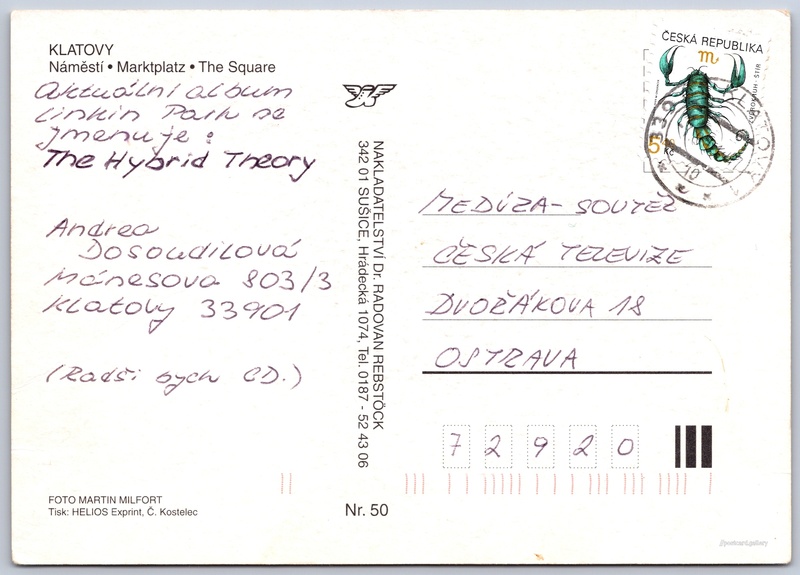 KLATOVY
Náměstí • Marktplatz • The Square
Aktuální album
Linkin Park se
jmenuje:
The Hybrid Theory
Andrea
Dosoudilová
Mánesova 803/3
Klatovy 33901
(Radši bych CD.)
FOTO MARTIN MILFORT
Tisk: HELIOS Exprint, Č. Kostelec
NAKLADATELSTVÍ Dr. RADOVAN REBSTÖCK
342 01 SUŠICE, Hrádecká 1074, Tel. 0187 - 52 43 06
Nr. 50
ČESKÁ REPUBLIKA
m
5
Kč
MEDÚZA - SOUTĚŽ
ČESKÁ TELEVIZE
DVOŘÁKOVA 18
OSTRAVA
7 2 9 2 0